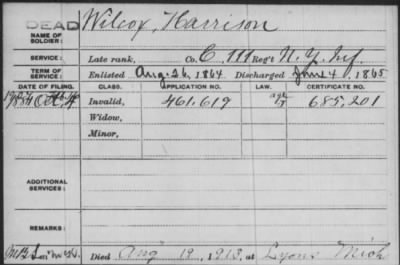 DEAD
NAME OF SOLDIER: Wilcox, Harrison
SERVICE: Late rank, Co. C, 111 Reg't N.Y. Inf.
TERM OF SERVICE: Enlisted Aug. 26, 1864 Discharged June 4, 1865
DATE OF FILING. CLASS. APPLICATION NO. LAW. CERTIFICATE NO.
Invalid, 461.619 685.201
Widow,
Minor,
ADDITIONAL SERVICES:
REMARKS:
Died Aug 19, 1913, at Lyons Mich